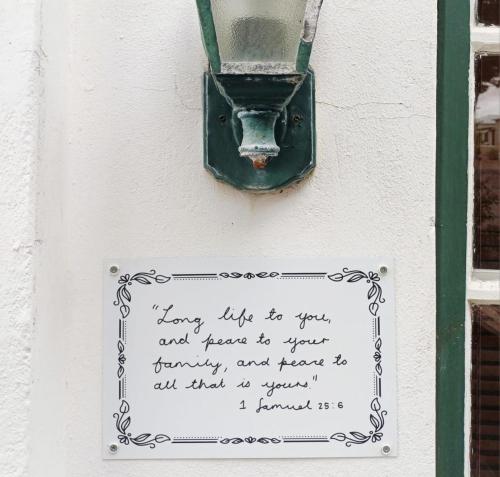 "Long life to you,
and peace to your
family, and peace to
all that is yours."
1 Samuel 25:6